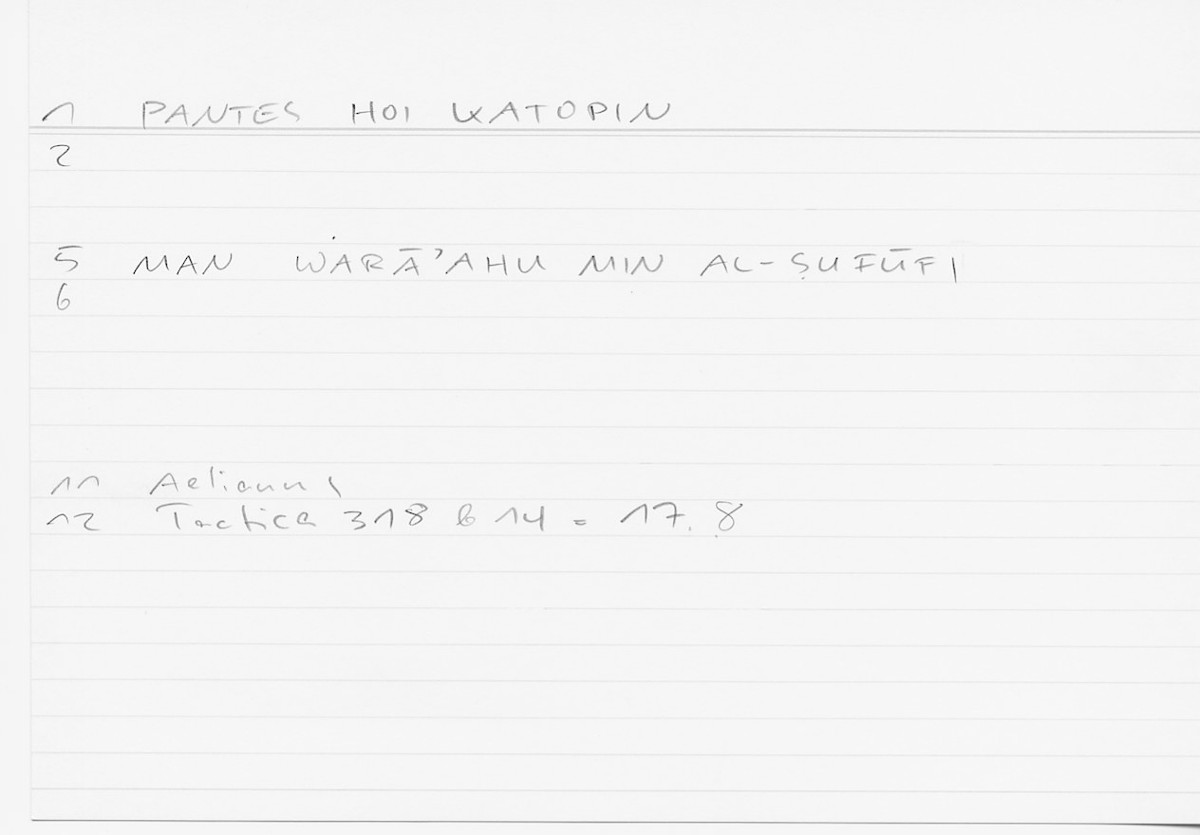 1 PANTES HOI KATOPIN
2
5 MAN WARĀ’AHU MIN AL-ṢUFŪFI
6
11 Aelianus
12 Tactica 318 b 14 = 17.8